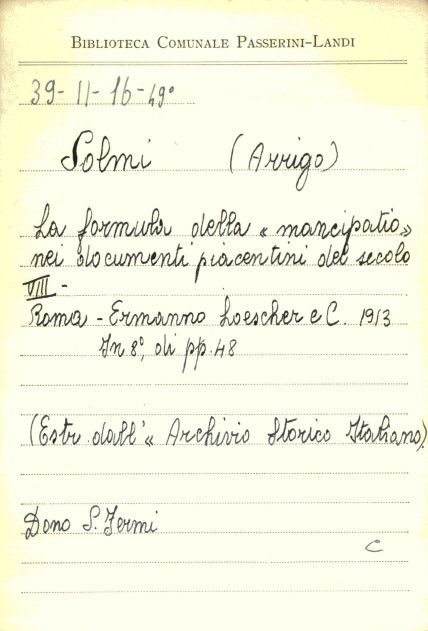 BIBLIOTECA COMUNALE PASSERINI-LANDI
39-11-16-49°
Solmi (Arrigo)
La formula della « mancipatio»
nei documenti piacentini del secolo
VIII -
Roma - Ermanno Loescher e C. 1913
In 8°, di pp. 48
(Estr. dall'« Archivio Storico Italiano)
Dono S. Fermi
C